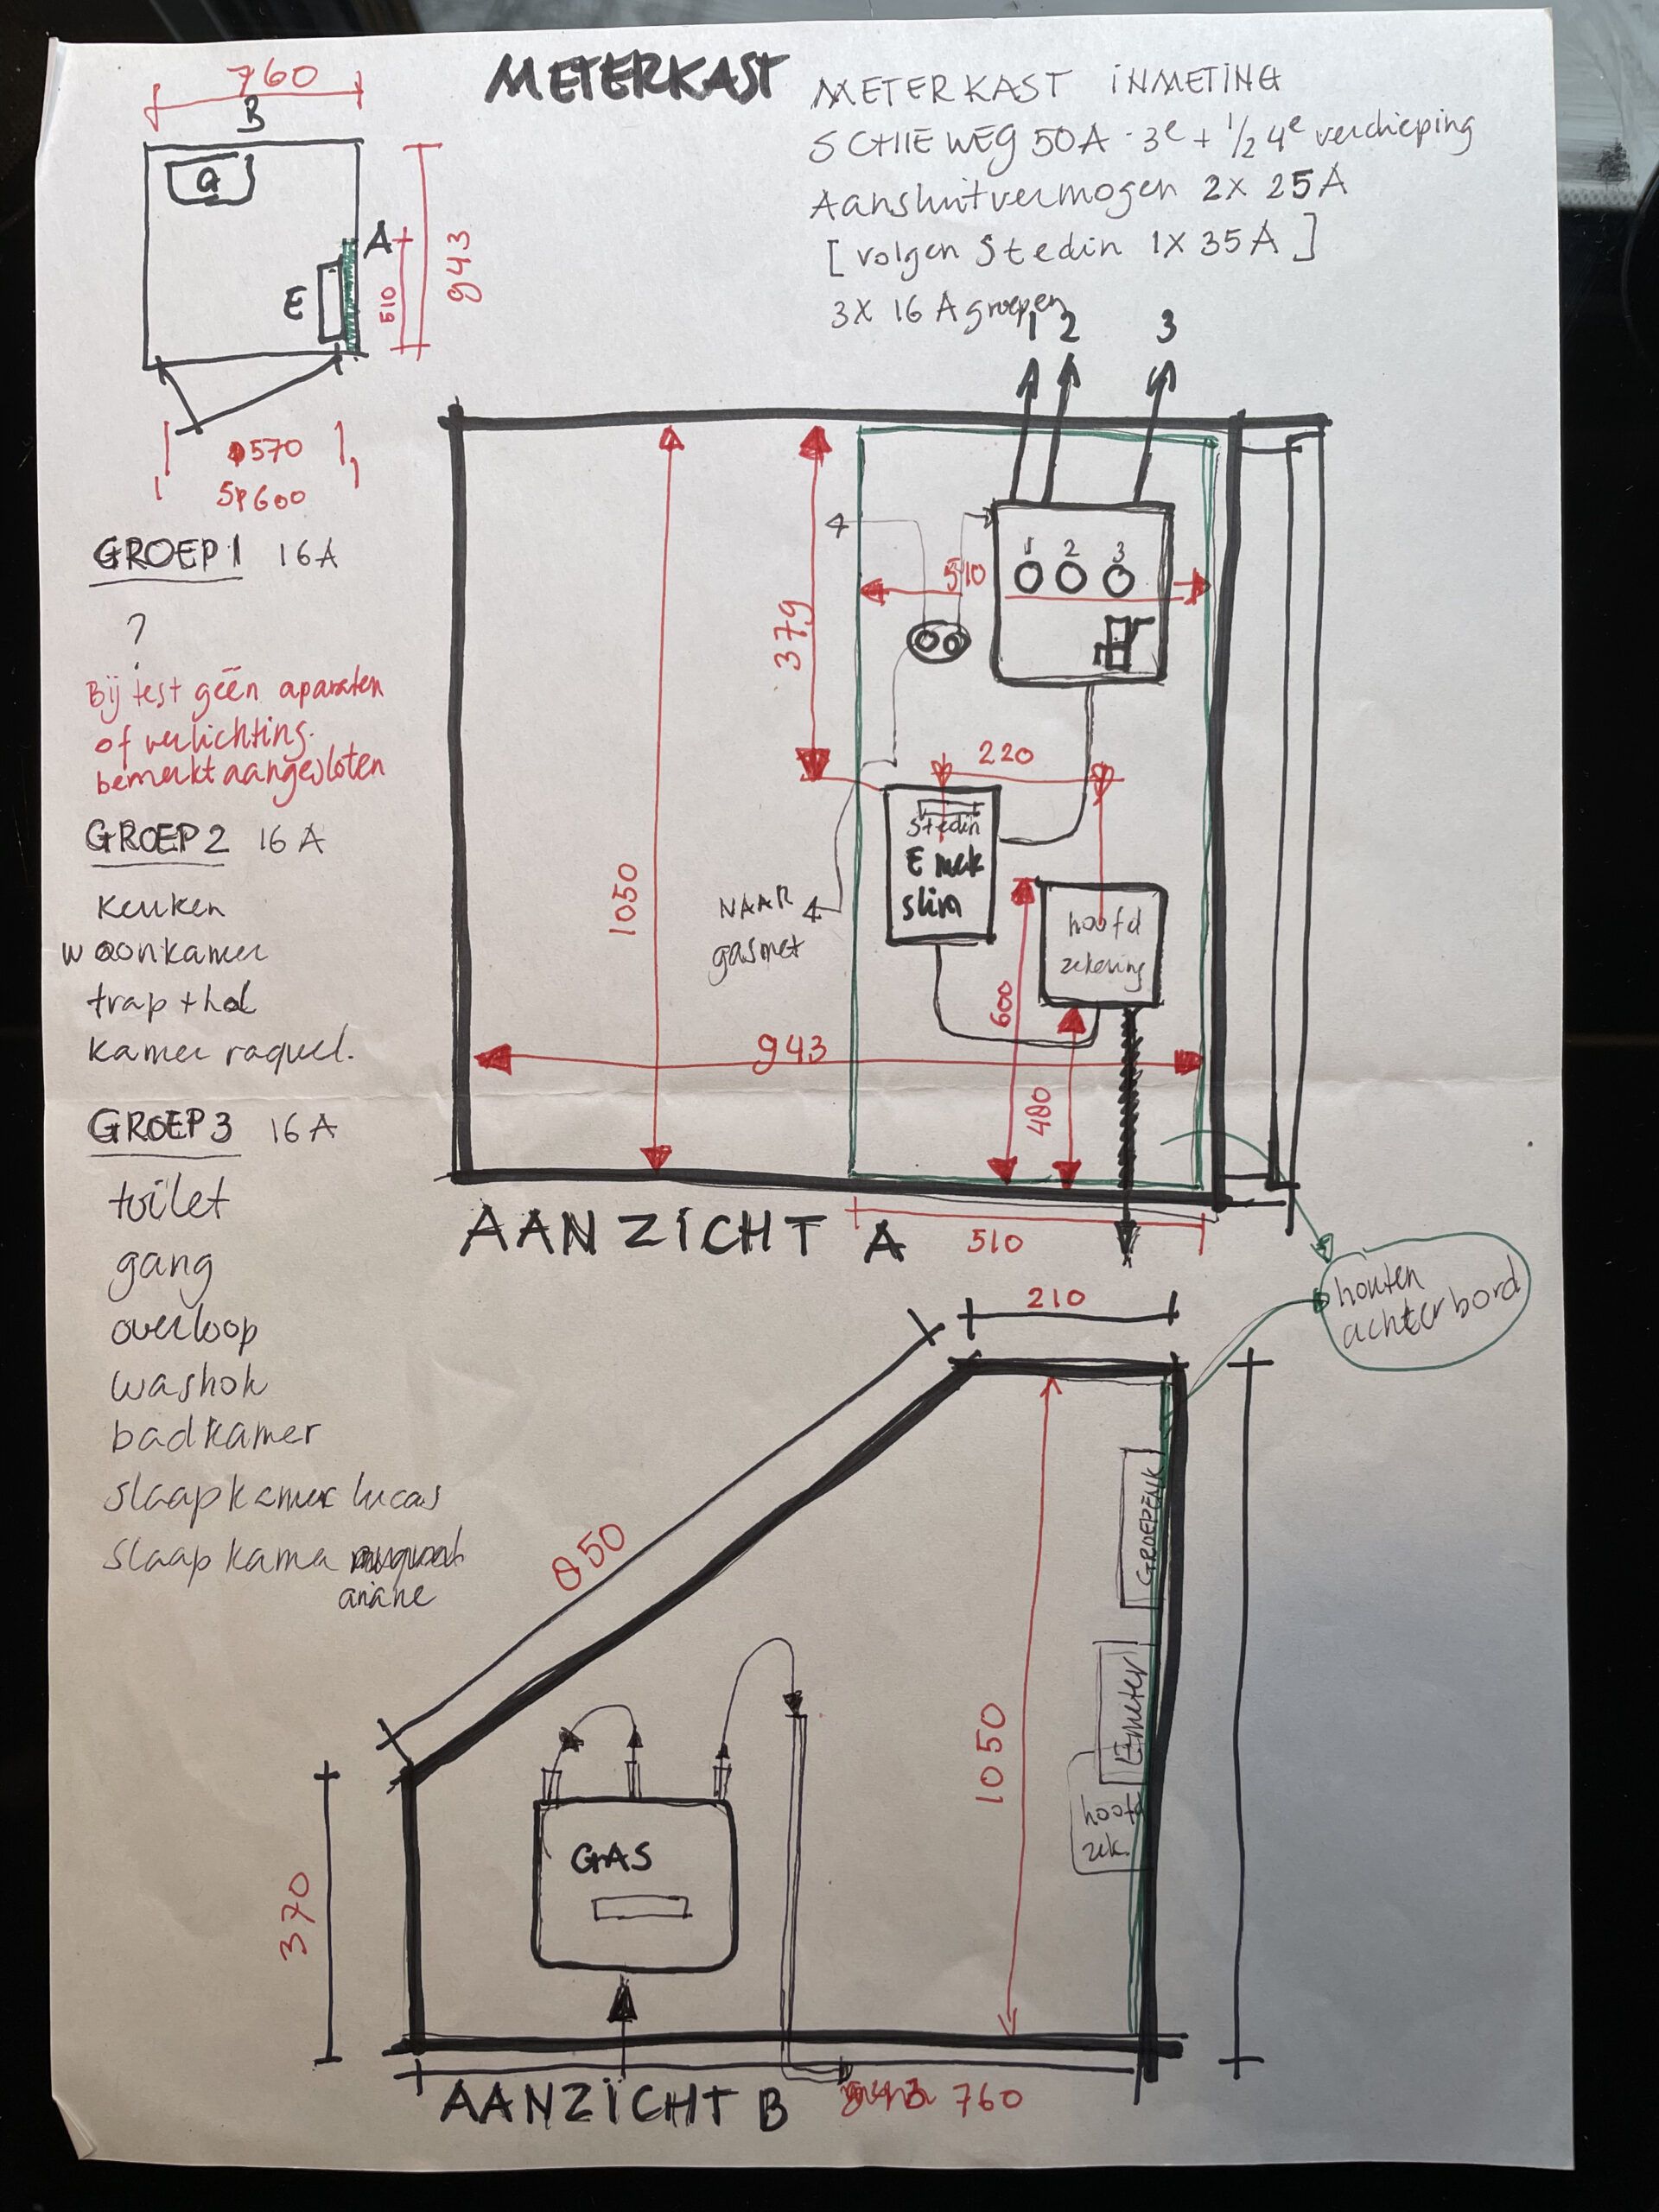 METERKAST
METERKAST INMETING
SCHIEWEG 50A - 3e + 1/2 4e verdieping
Aansluitvermogen 2x 25A
[volgen Stedin 1x 35A]
3x 16 A groepen
760
B
G
A
E
510
943
570
600
1 2 3
GROEP 1 16A
?
Bij test géén aparaten
of verlichting.
bemerkt aangesloten
GROEP 2 16A
keuken
woonkamer
trap + hal
kamer raquel.
GROEP 3 16A
toilet
gang
overloop
washok
badkamer
slaapkamer lucas
slaapkamer
ariane
1 2 3
510
379
220
1050
Stedin
E mek
slim
NAAR
gasmet
hoofd
zekering
600
480
943
AANZICHT A
510
houten
achterbord
210
850
GROEPENK
Emeter
hoofd
zek.
1050
GAS
370
AANZICHT B
760